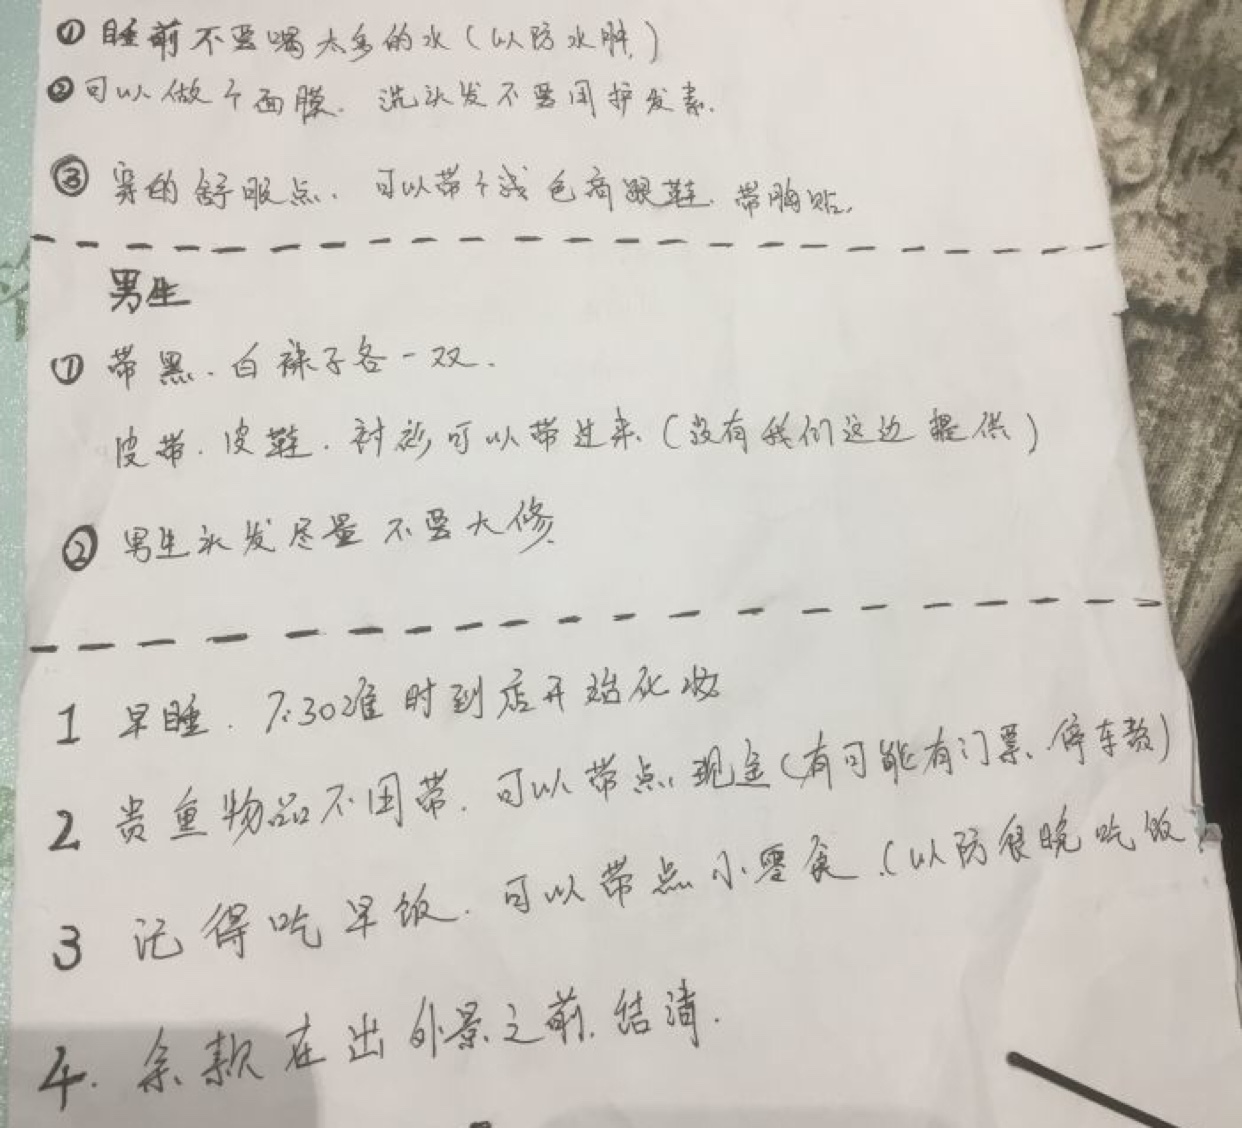 ① 睡前不要喝太多的水(以防水肿)
② 可以做个面膜. 洗头发不要用护发素.
③ 穿的舒服点. 可以带个浅色高跟鞋. 带胸贴.
男生
① 带黑.白袜子各一双.
皮带.皮鞋.衬衫可以带过来(没有我们这边提供)
② 男生头发尽量不要大修
1 早睡. 7:30准时到店开始化妆
2 贵重物品不用带. 可以带点现金(有可能有门票、停车费)
3 记得吃早饭. 可以带点小零食.(以防很晚吃饭)
4. 余款在出外景之前结清.